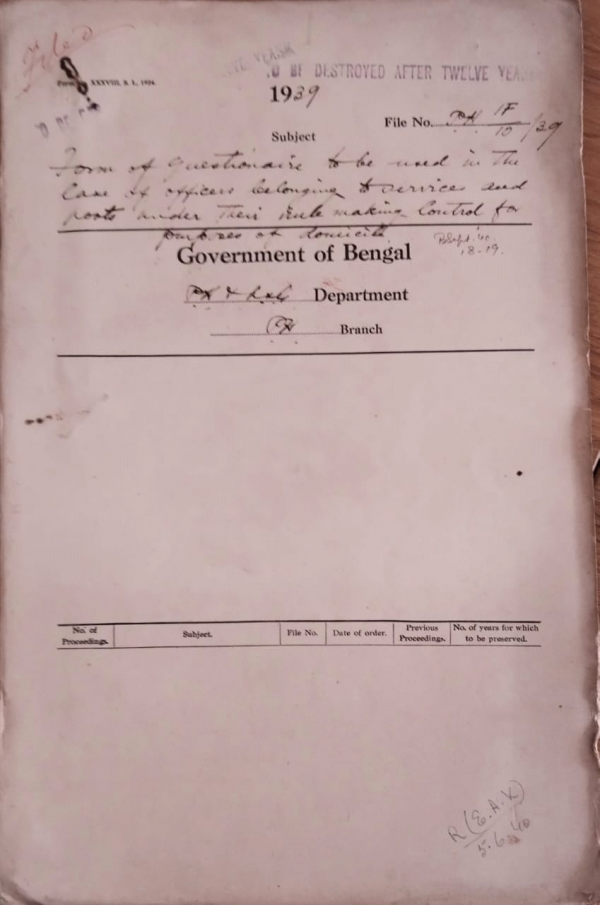 Filed
TWELVE YEARS
TO BE DESTROYED AFTER TWELVE YEARS
XXXVIII, S. L. 1934.
1939
File No. P.H 1F/10/39
Subject
Form of Questionaire to be used in the
Case of officers belonging to services and
posts under their rule making Control for
purposes of domicile
B Sept. '40.
18-19.
Government of Bengal
Department
P.H Branch
No. of Proceedings.
Subject.
File No.
Date of order.
Previous Proceedings.
No. of years for which to be preserved.
R (E.A.K)
5.6.40